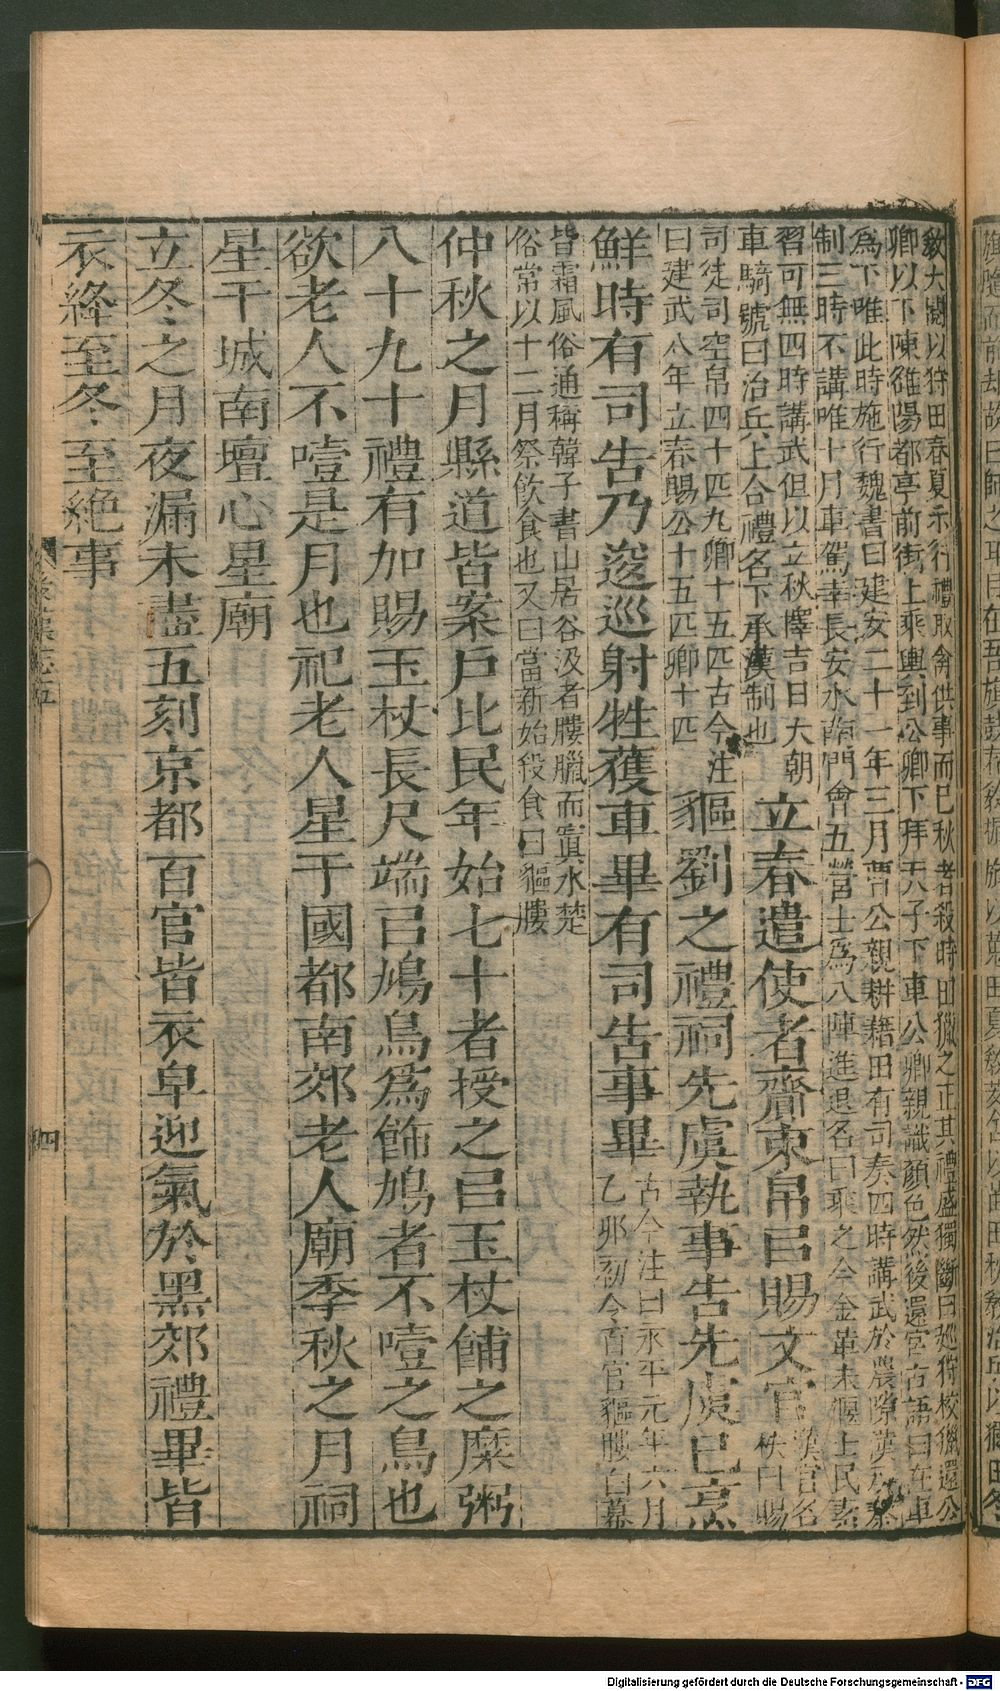 敎大閱以狩田春夏示行禮取禽供事而已秋者殺時田獵之正其禮盛獨斷曰廵狩校獵還公
卿以下陳雒陽都亭前街上乘輿到公卿下拜天子下車公卿親識顏色然後還宮古語曰在車
爲下唯此時施行魏書曰建安二十一年三月曹公親耕藉田有司奏四時講武於農隙漢承秦
制三時不講唯十月車駕幸長安水南門會五營士爲八陣進退名曰乘之今金革未偃士民素
習可無四時講武但以立秋擇吉日大朝
車騎號曰治兵上合禮名下承漢制也
立春遣使者齎束帛㠯賜文官
漢官名
秩曰賜
司徒司空帛四十匹九卿十五匹古今注
曰建武八年立春賜公十五匹卿十匹
貙劉之禮祠先虞執事告先虞已烹
鮮時有司告乃逡巡射牲獲車畢有司告事畢
古今注曰永平元年六月
乙卯初令百官貙膢白幕
皆霜風俗通稱韓子書山居谷汲者膢臘而寘水楚
俗常以十二月祭飲食也又曰當新始殺食曰貙膢
仲秋之月縣道皆案戶比民年始七十者授之㠯玉杖餔之糜粥
八十九十禮有加賜玉杖長尺端㠯鳩鳥爲飾鳩者不噎之鳥也
欲老人不噎是月也祀老人星于國都南郊老人廟季秋之月祠
星于城南壇心星廟
立冬之月夜漏未盡五刻京都百官皆衣皁迎氣於黑郊禮畢皆
衣絳至冬至絕事
後漢志五
四
Digitalisierung gefördert durch die Deutsche Forschungsgemeinschaft - DFG